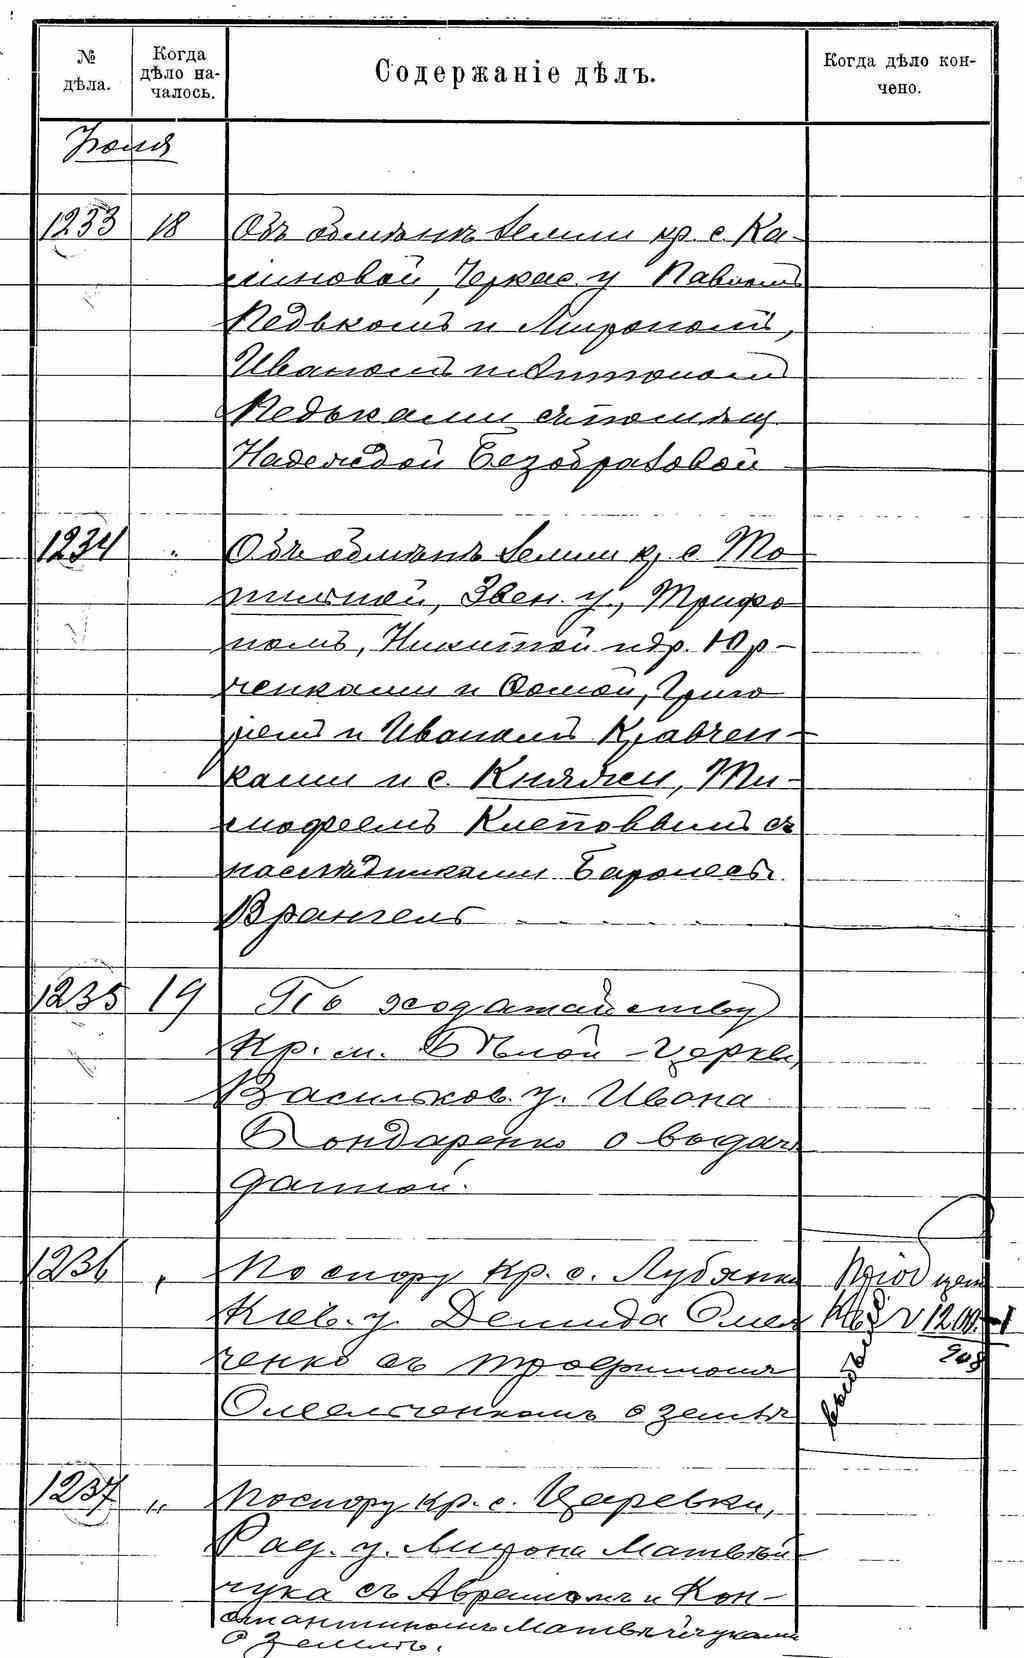 № дѣла.
Когда дѣло началось.
Содержаніе дѣлъ.
Когда дѣло кончено.
Іюля
1233 18 Объ обмѣнѣ земли кр. с. Ка-
линовой, Черкас. у Павломъ
Редькомъ и Мирономъ,
Иваномъ и Антономъ
Редьками съ помѣщ.
Надеждой Безобразовой
1234 " Объ обмѣнѣ земли кр. с.
Звен. у., Трифо
номъ, Никитой и др. Юр-
ченками и Фомой, Григо
ремъ и Иваномъ Кравчен-
ками и с. Княжей, Ти-
мофеемъ съ
наслѣдниками Баронессы
Врангель
1235 19 По ходатайству
Кр. м. Бѣлой-Церкви,
Васильков. у. Ивана
Бондаренко о выдачѣ
данной.
1236 " По спору кр. с. Лубянки
Кіев. у. Демида Омель
ченко съ Трофимомъ
Омельченкомъ о землѣ
Пріобщен
къ № 1200
908
1237 " По спору кр. с. Царевки,
Рад. у. Мирона Матвѣй-
чука съ Аврамомъ и Кон-
стантиномъ Матвѣйчуками
о землѣ.